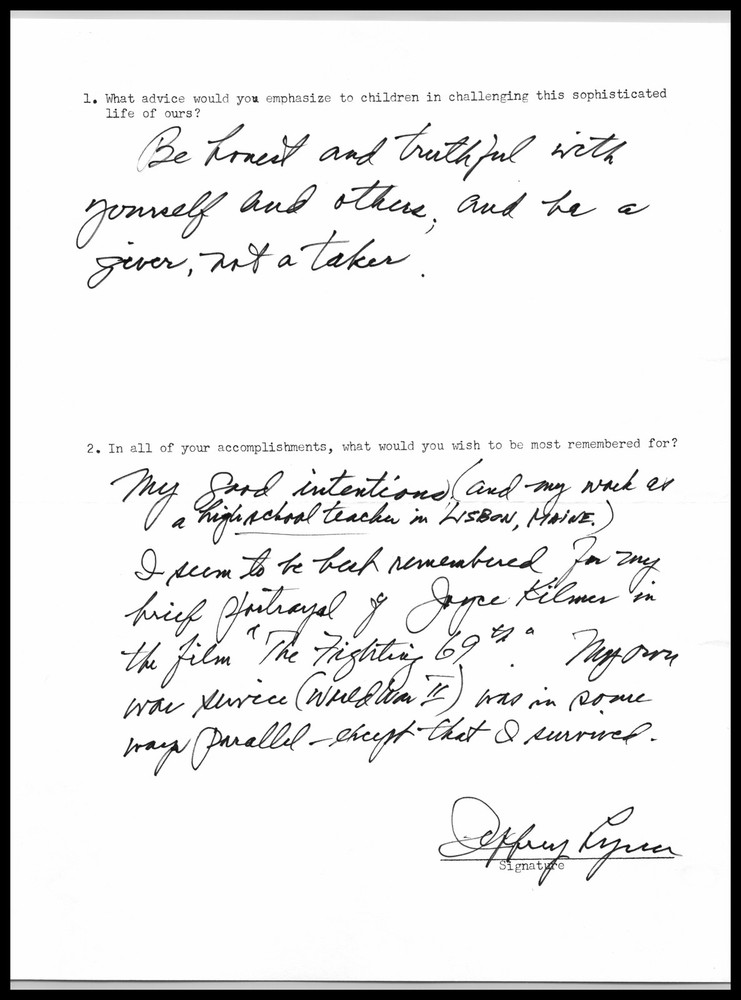 1. What advice would you emphasize to children in challenging this sophisticated
life of ours?
Be honest and truthful with
yourself and others, and be a
giver, not a taker.
2. In all of your accomplishments, what would you wish to be most remembered for?
My good intentions (and my work as
a high school teacher in LISBON, MAINE.)
I seem to be best remembered for my
brief portrayal of Joyce Kilmer in
the film "The Fighting 69th". My own
war service (World War II) was in some
ways parallel - except that I survived.
Jeffrey Lynn
Signature